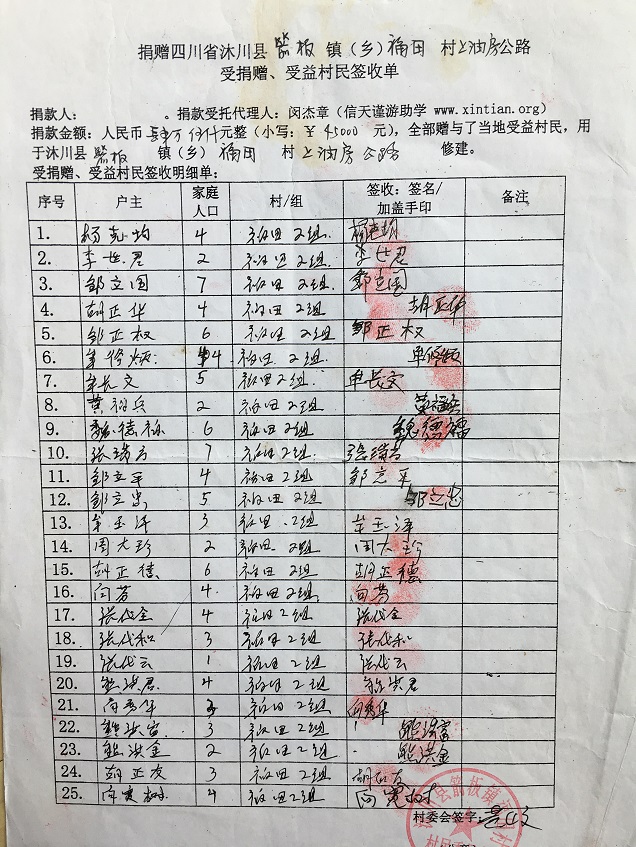 捐赠四川省沐川县 箭板 镇（乡）福田 村上油房公路
受捐赠、受益村民签收单
捐款人： 。捐款受托代理人：闵杰章（信天谨游助学 www.xintian.org）
捐款金额：人民币 肆万伍仟元整（小写：￥45000 元），全部赠与了当地受益村民，用
于沐川县 箭板 镇（乡）福田 村 上油房公路 修建。
受捐赠、受益村民签收明细单：
序号 户主 家庭人口 村/组 签收：签名/加盖手印 备注
1. 4 福田 2组
2. 李世君 2 福田 2组 李世君
3. 邹立国 7 福田 2组 邹立国
4. 胡正华 4 福田 2组 胡正华
5. 邹正权 6 福田 2组 邹正权
6. 4 福田 2组
7. 牟长文 5 福田 2组 牟长文
8. 黄福兵 2 福田 2组
9. 魏德福 6 福田 2组 魏德福
10. 7 福田 2组
11. 邹立平 4 福田 2组 邹立平
12. 邹立忠 5 福田 2组 邹立忠
13. 牟玉泽 3 福田 2组 牟玉泽
14. 周大珍 2 福田 2组 周大珍
15. 胡正德 6 福田 2组 胡正德
16. 向芳 4 福田 2组 向芳
17. 张代全 4 福田 2组 张代全
18. 张代和 3 福田 2组 张代和
19. 张代云 1 福田 2组 张代云
20. 熊洪君 4 福田 2组 熊洪君
21. 向秀华 3 福田 2组 向秀华
22. 熊洪富 3 福田 2组 熊洪富
23. 熊洪金 2 福田 2组 熊洪金
24. 胡正友 3 福田 2组
25. 4 福田 2组
村委会签字：